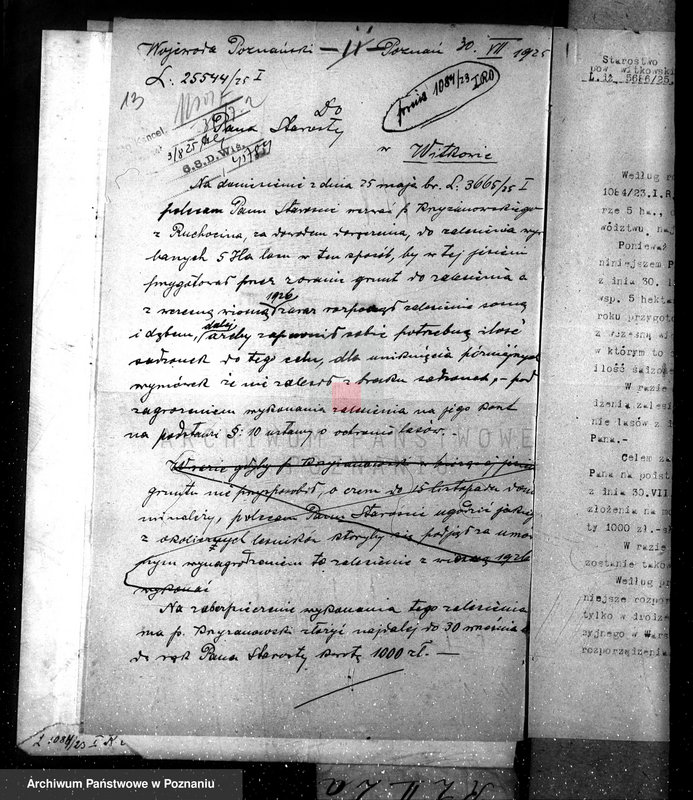 Wojewoda Poznański Poznań 30. VII 1925
L. 25544/25 I
13
Do
Pana Starosty
w Witkowie
prius 1084/23 I.R.O
S.S.D.Wit.
Na doniesienie z dnia 25 maja br. L. 3665/25 I
polecam Panu Staroście wezwać p. Kryzanowskiego
z Ruchocina, za dowodem doręczenia, do zalesienia wyrę
banych 5 Ha lasu w ten sposób, by w tej jesieni
przygotował przez zoranie grunt do zalesienia a
z wczesną wiosną 1926 zaraz rozpoczął zalesienie sosną
i dębem, dalej ażeby zapewnił sobie potrzebną ilość
sadzonek do tego celu, dla uniknięcia późniejszych
wymówek że nie zalesił z braku sadzonek, - pod
zagrożeniem wykonania zalesienia na jego koszt
na podstawie § 10 ustawy o ochronie lasów.
W razie gdyby p. Kryzanowski w bieżącej jesieni
gruntu nie przysposobił, o czem do 15 listopada
polecam Panu Staroście ugodzić jakiegoś
z okolicznych leśników któryby się podjął za umó
wnym wynagrodzeniem to zalesienie z wiosną 1926
wykonać
Na zabezpieczenie wykonania tego zalesienia
ma p. Kryzanowski złożyć najdalej do 30 września
do rąk Pana Starosty kwotę 1000 zł. —
L. 1084/23 I R
Starostwo
pow. witkowski
L. iz 5686/25.
Według
1084/23.I.R
rze 5 ha.,
wództwu, naj
Ponieważ
niniejszem P
z dnia 30.
wsp. 5 hektar
roku przygoto
z wczesną wi
w którym to
ilość
W razie
nie lasów z
Pana.-
Celem za
Pana na podst
z dnia 30.VII
złożenia na mo
ty 1000 zł.-
W razie
zostanie taków
Według pr
niejsze rozpor
tylko w drodze
zyjnego w Wars
rozporządzenia
ARCHIWUM PAŃSTWOWE
W POZNANIU
Archiwum Państwowe w Poznaniu